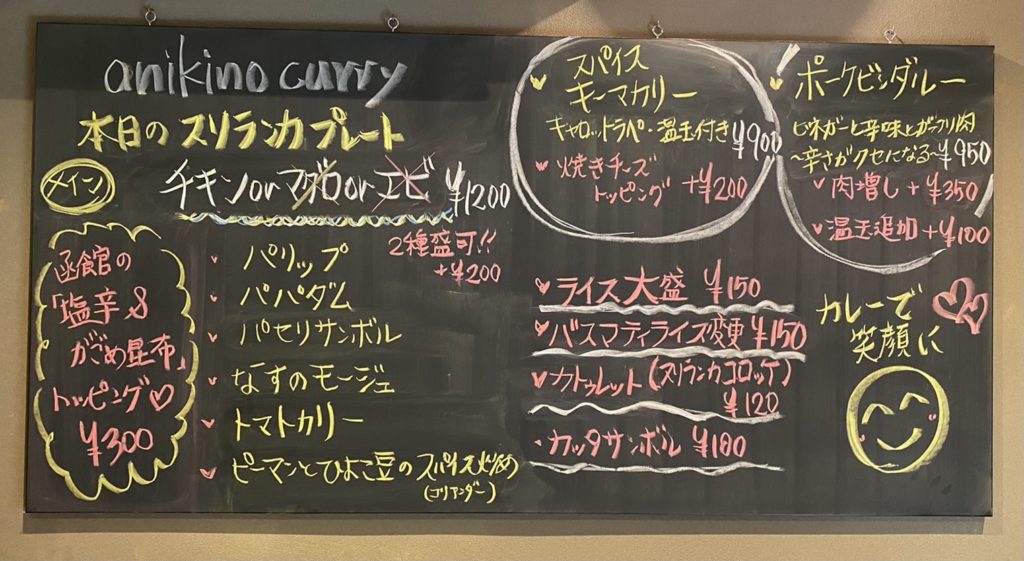 anikino curry
本日の スリランカプレート
メイン
チキン or マグロ or エビ ¥1200
2種盛可!!
+¥200
函館の
「塩辛&
がごめ昆布」
トッピング♡
¥300
パリップ
パパダム
パセリサンボル
なすのモージュ
トマトカリー
ピーマンとひよこ豆のスパイス炒め
(コリアンダー)
スパイス
キーマカリー
キャロットラペ・温玉付き ¥900
焼きチーズ
トッピング +¥200
ポークビンダルー
ビネガーと辛味とガッツリ肉
~辛さがクセになる~ ¥950
肉増し +¥350
温玉追加 +¥100
ライス大盛 ¥150
バスマティライス変更 ¥150
カトゥレット(スリランカコロッケ)
¥120
・カッタサンボル ¥100
カレーで
笑顔に